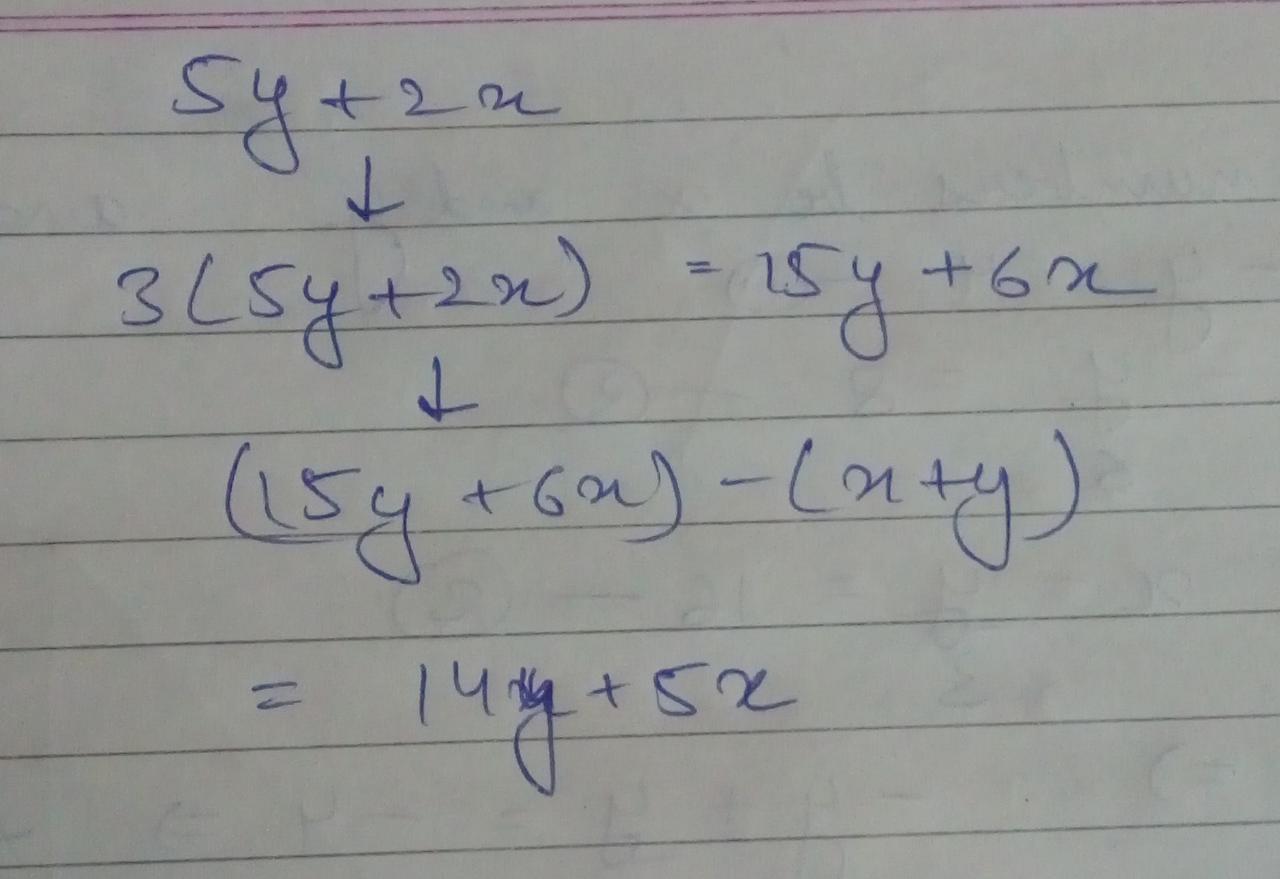 5y + 2x
↓
3(5y + 2x) = 15y + 6x
↓
(15y + 6x) - (x + y)
= 14y + 5x